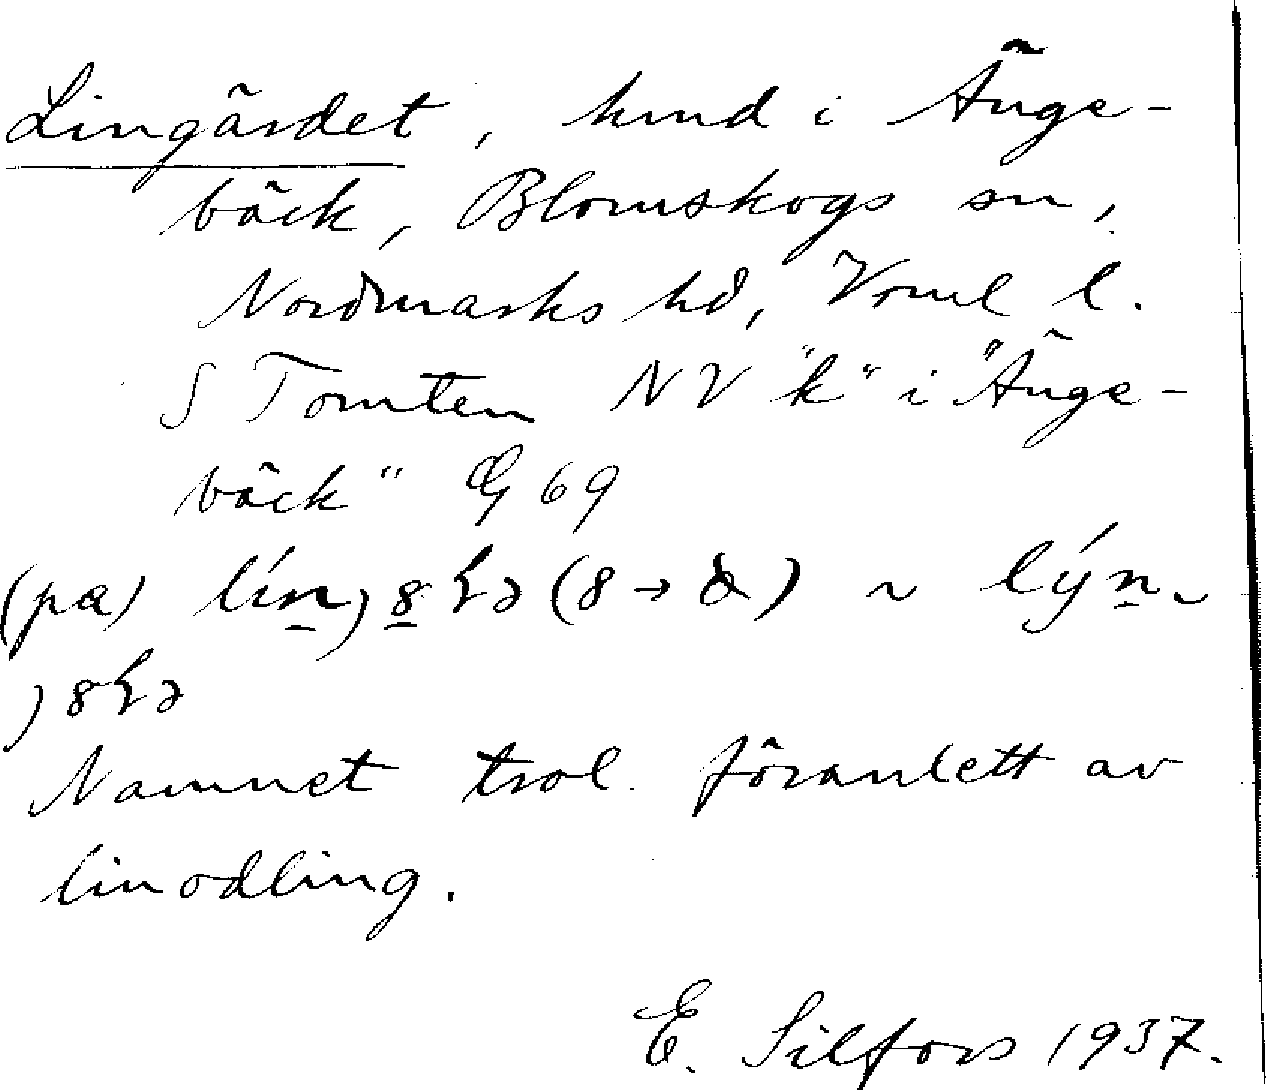 Lingärdet, hmd i Änge-
bäck, Blomskogs sn,
Nordmarks hd, Vrml l.
S Tomten NV "k" i "Änge-
bäck" G 69
(pa)
Namnet trol. föranlett av
linodling.
E. Silfors 1937.